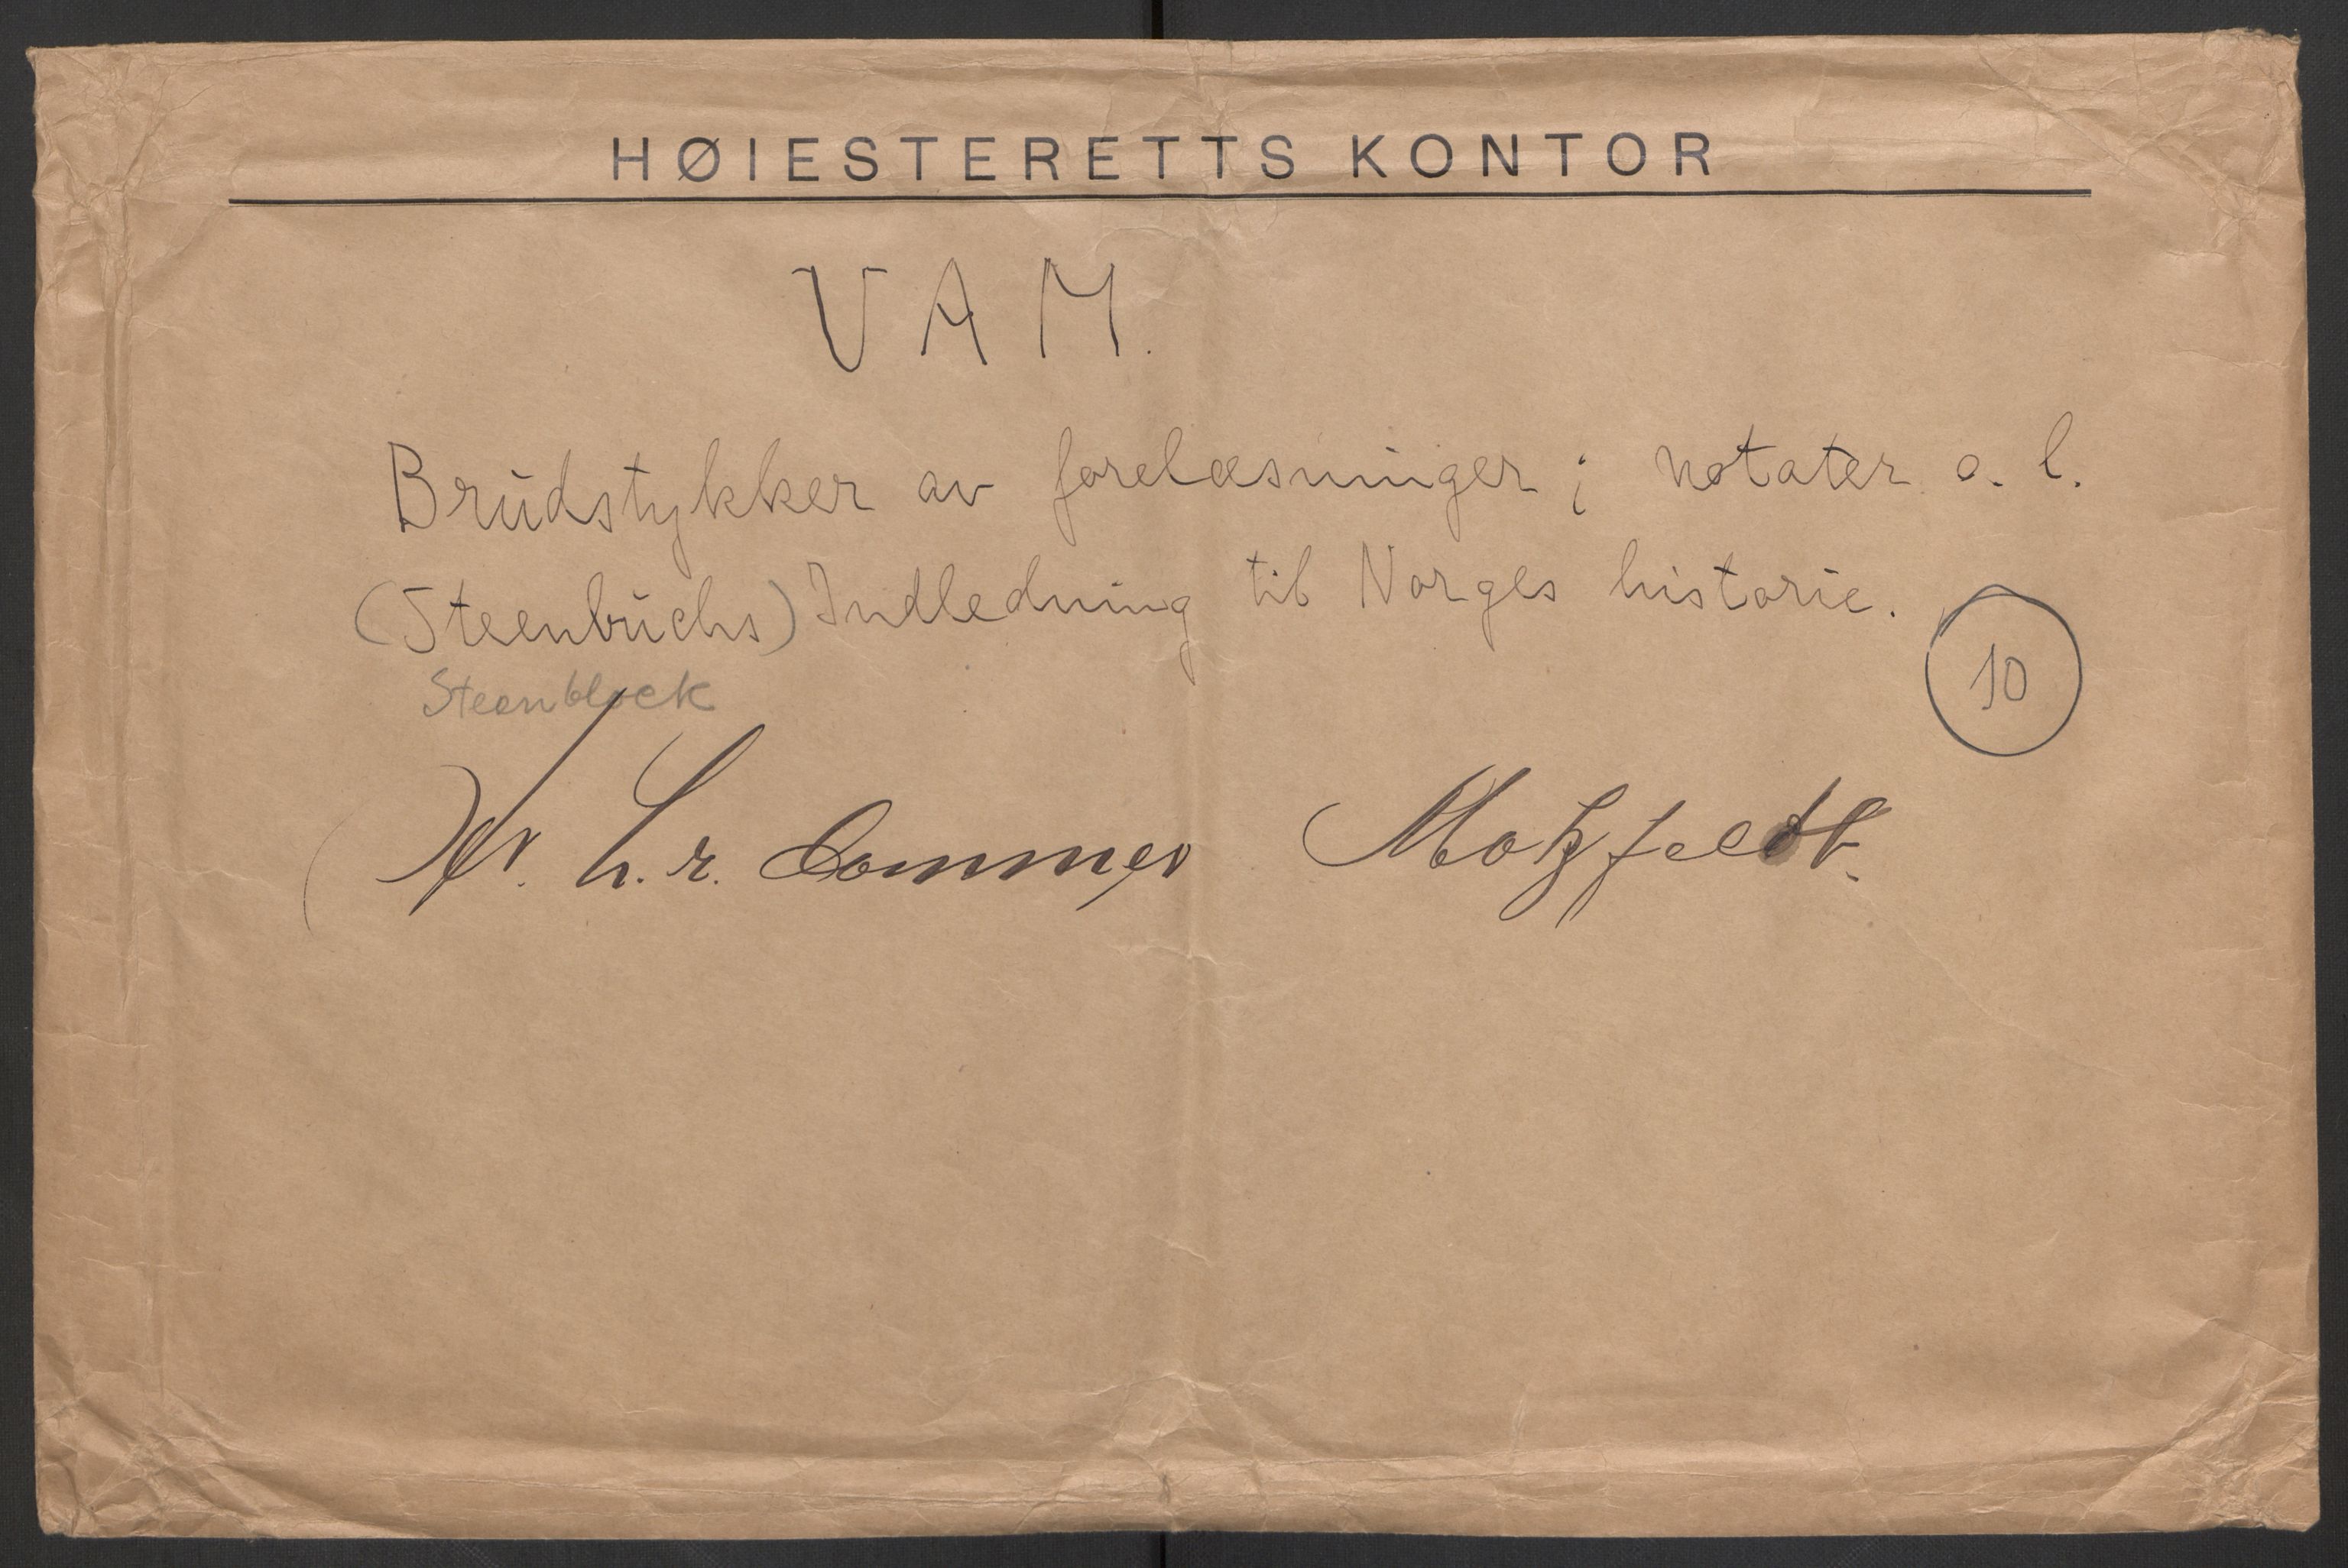 HØIESTERETTS KONTOR
V A M.
Brudstykker av forelæsninger; notater o. l.
(Steenbuchs) Indledning til Norges historie.
10
Steenblock
Hr. h.r. dommer Motzfeldt.